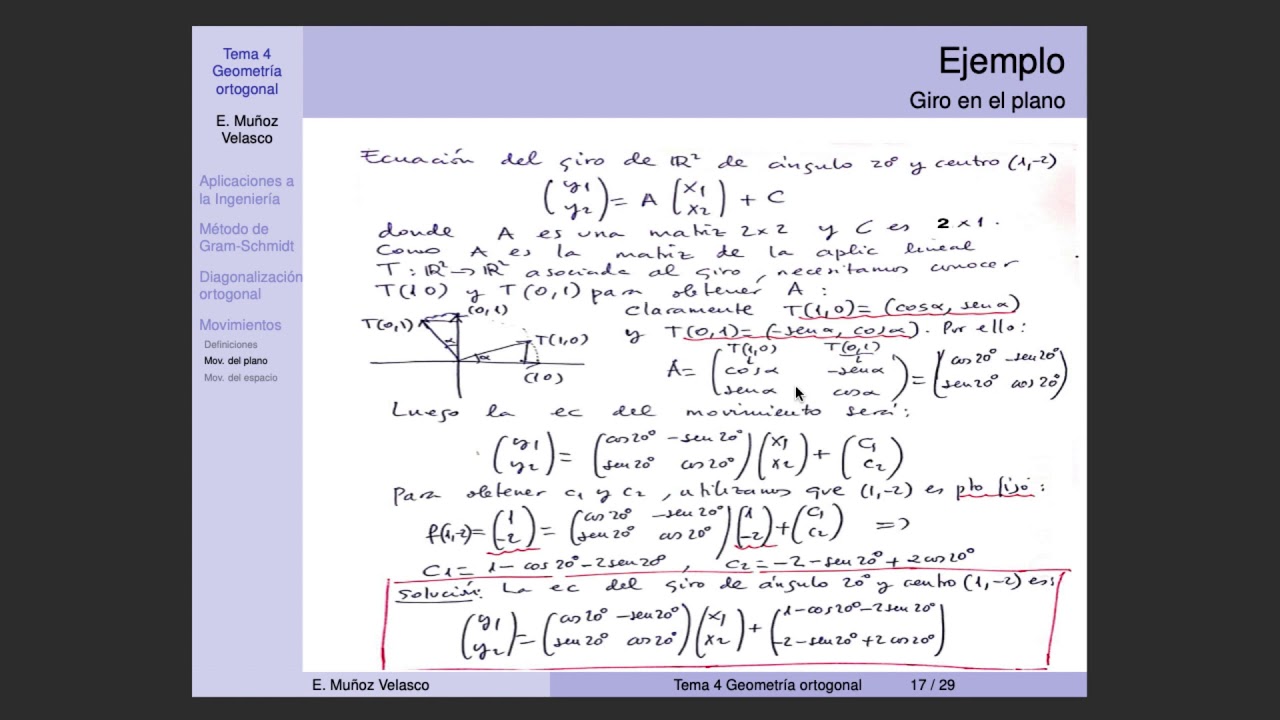 Tema 4
Geometría
ortogonal
E. Muñoz
Velasco
Aplicaciones a
la Ingeniería
Método de
Gram-Schmidt
Diagonalización
ortogonal
Movimientos
Definiciones
Mov. del plano
Mov. del espacio
Ejemplo
Giro en el plano
Ecuación del giro de ℝ² de ángulo 20º y centro (1,-2)
(y1 y2) = A (x1 x2) + C
donde A es una matriz 2x2 y C es 2 x 1.
Como A es la matriz de la aplic lineal
T: ℝ² → ℝ² asociada al giro, necesitamos conocer
T(1 0) y T(0,1) para obtener A:
claramente T(1,0) = (cosα, senα)
y T(0,1) = (-senα, cosα). Por ello:
T(0,1) (0,1) T(1,0) (1 0) α α
T(1,0) T(0,1)
A = (cosα -senα senα cosα) = (cos20º -sen20º sen20º cos20º)
Luego la ec del movimiento será:
(y1 y2) = (cos20º -sen20º sen20º cos20º) (x1 x2) + (c1 c2)
Para obtener c1 y c2, utilizamos que (1,-2) es pto fijo:
f(1,-2) = (1 -2) = (cos20º -sen20º sen20º cos20º) (1 -2) + (c1 c2) =>
c1 = 1 - cos20º - 2sen20º, c2 = -2 - sen20º + 2cos20º
Solución: La ec del giro de ángulo 20º y centro (1,-2) es:
(y1 y2) = (cos20º -sen20º sen20º cos20º) (x1 x2) + (1-cos20º-2sen20º -2-sen20º+2cos20º)
E. Muñoz Velasco Tema 4 Geometría ortogonal 17 / 29